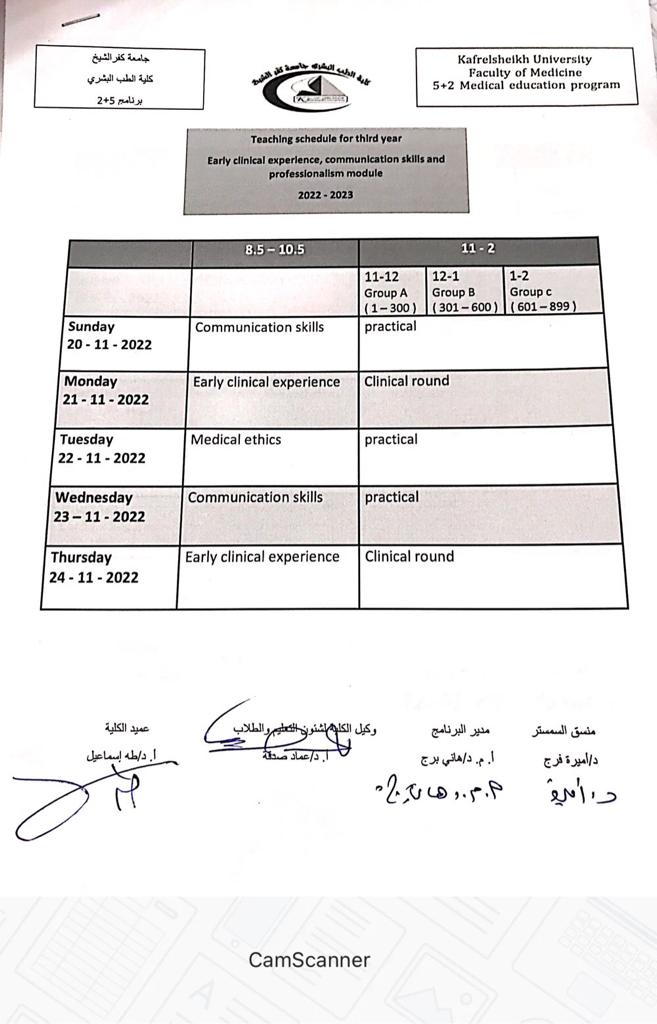 جامعة كفر الشيخ
كلية الطب البشري
برنامج 5+2
كلية الطب البشري جامعة كفر الشيخ
Kafrelsheikh University
Faculty of Medicine
5+2 Medical education program
Teaching schedule for third year
Early clinical experience, communication skills and
professionalism module
2022 - 2023
8.5 – 10.5 11 - 2
11-12 12-1 1-2
Group A Group B Group c
(1 – 300) (301 – 600) (601 – 899)
Sunday Communication skills practical
20 - 11 - 2022
Monday Early clinical experience Clinical round
21 - 11 - 2022
Tuesday Medical ethics practical
22 - 11 - 2022
Wednesday Communication skills practical
23 – 11 - 2022
Thursday Early clinical experience Clinical round
24 - 11 - 2022
منسق السمستر مدير البرنامج وكيل الكلية لشئون التعليم والطلاب عميد الكلية
د/أميرة فرج أ. م. د/هاني برج أ. د/عماد صدقة أ. د/طه إسماعيل
د. أميرة
CamScanner